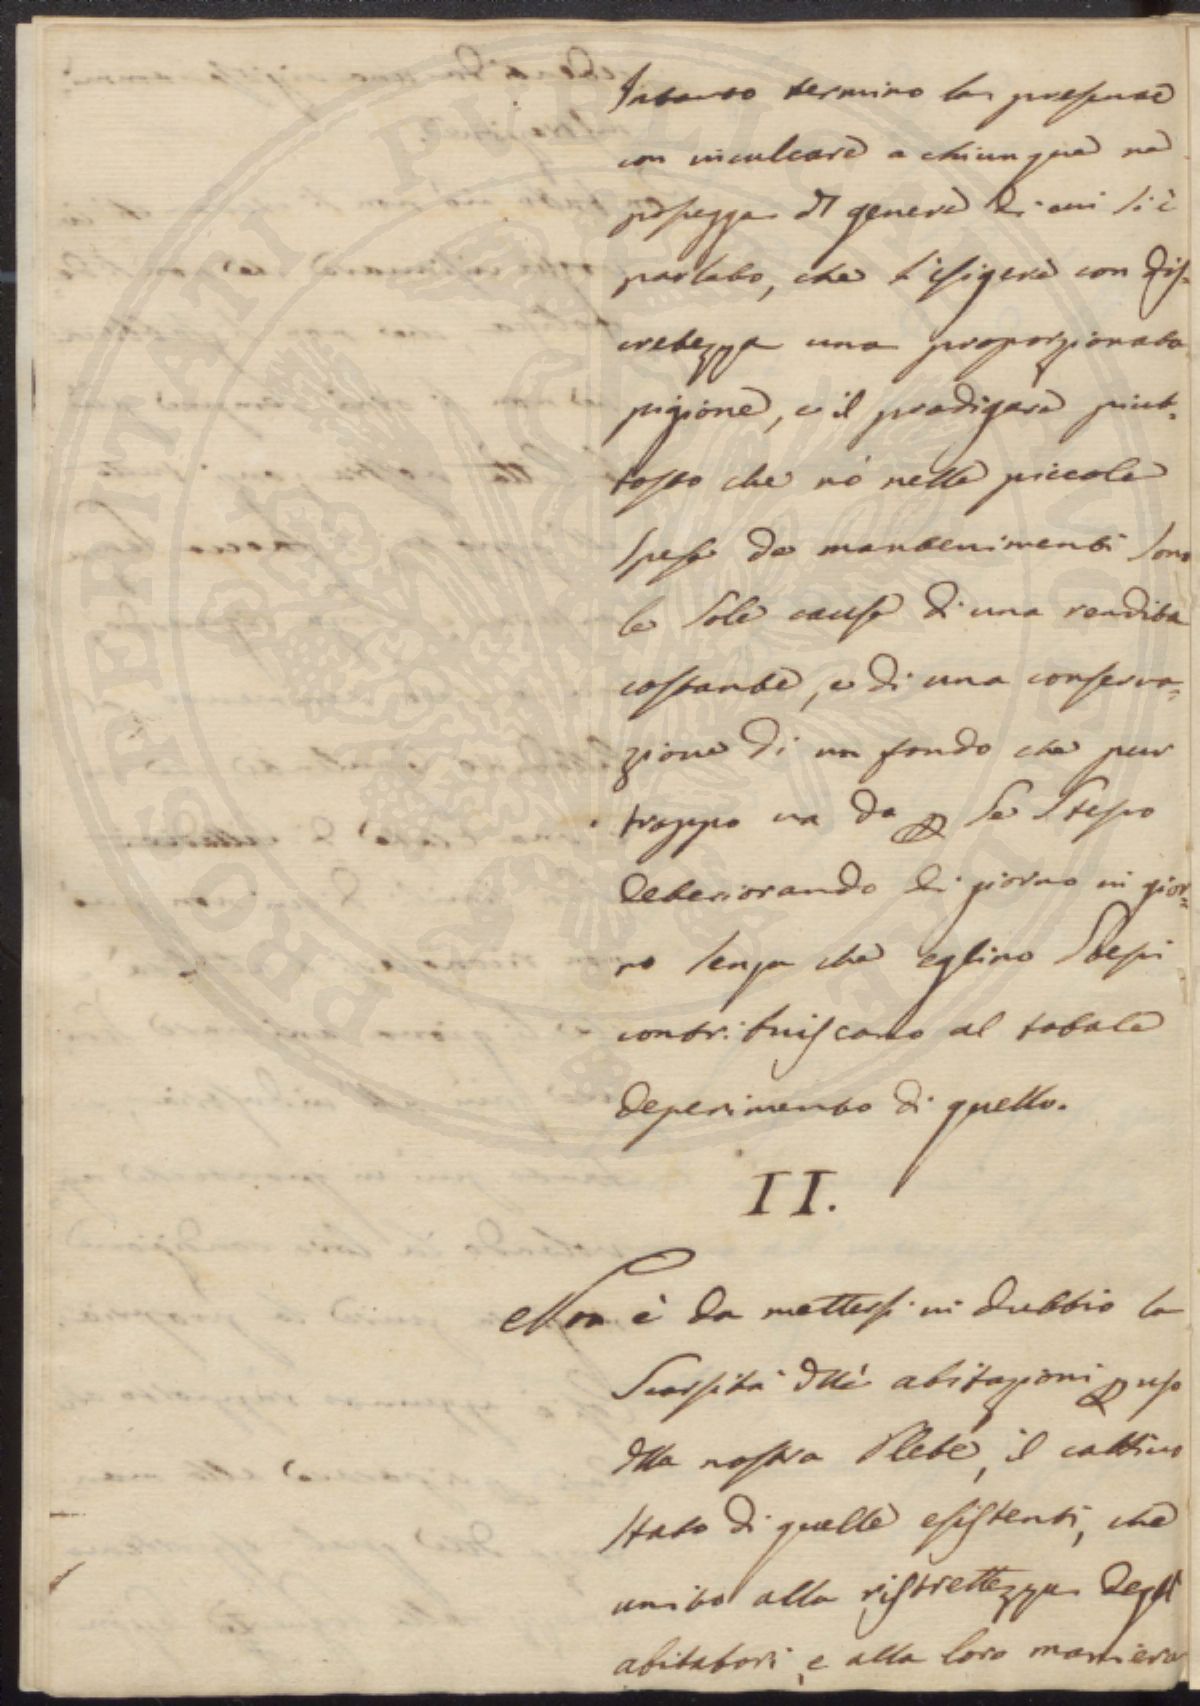 Intanto termino la presente
con inculcare a chiunque ne
possegga dl genere di cui si è
parlato, che l'esigere con dis-
cretezza una proporzionata
pigione, e il prodigare piut-
tosto che nò nelle piccole
spese de mantenimenti sono
le sole cause di una rendita
costante, e di una conserva-
zione di un fondo che pur
troppo va da p se stesso
deteriorando di giorno in gior-
no senza che eglino stessi
contribuiscano al totale
deperimento di quello.
II.
Non è da mettersi in dubbio la
scarsità dlle abitazioni p uso
dlla nostra Plebe, il cattivo
stato di quelle esistenti, che
unito alla ristrettezza degli
abitatori, e alla loro maniera
PROSPERITATI PUBLICAE AUGENDAE